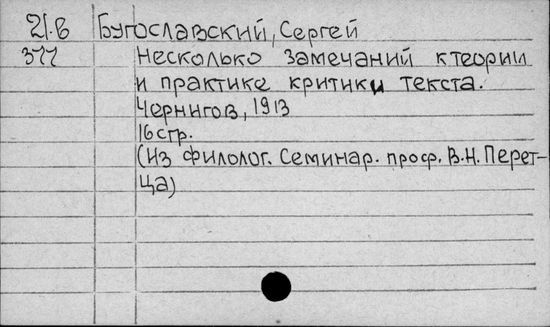 21.в Бугославский, Сергей
377 Несколько замечаний к теории
и практике критики текста.
Чернигов, 1913
16 стр.
(Из филолог. Семинар. проф. В.Н. Перет-
ца)